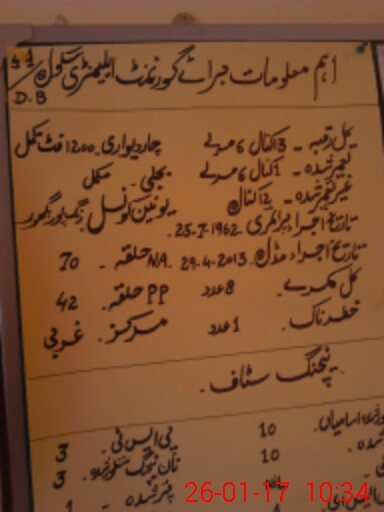 اہم معلومات برائے گورنمنٹ ایلیمنٹری سکول
D.B
کل رقبہ - 13 کنال 6 مرلے چاردیواری - 1200 فٹ مکمل
تعمیر شدہ - 1 کنال 6 مرلے بجلی - مکمل
غیر تعمیر شدہ - 12 کنال یونین کونسل
تاریخ اجراء پرائمری 25-7-1962
تاریخ اجراء مڈل 29-4-2013 NA حلقہ - 70
کل کمرے - 8 عدد PP حلقہ - 42
خطرناک - 1 عدد مرکز - غربی
ٹیچنگ سٹاف -
اسامیاں - 10 پی ایس ٹی - 3
شدہ - 10 نان ٹیچنگ 3
26-01-17 10:34